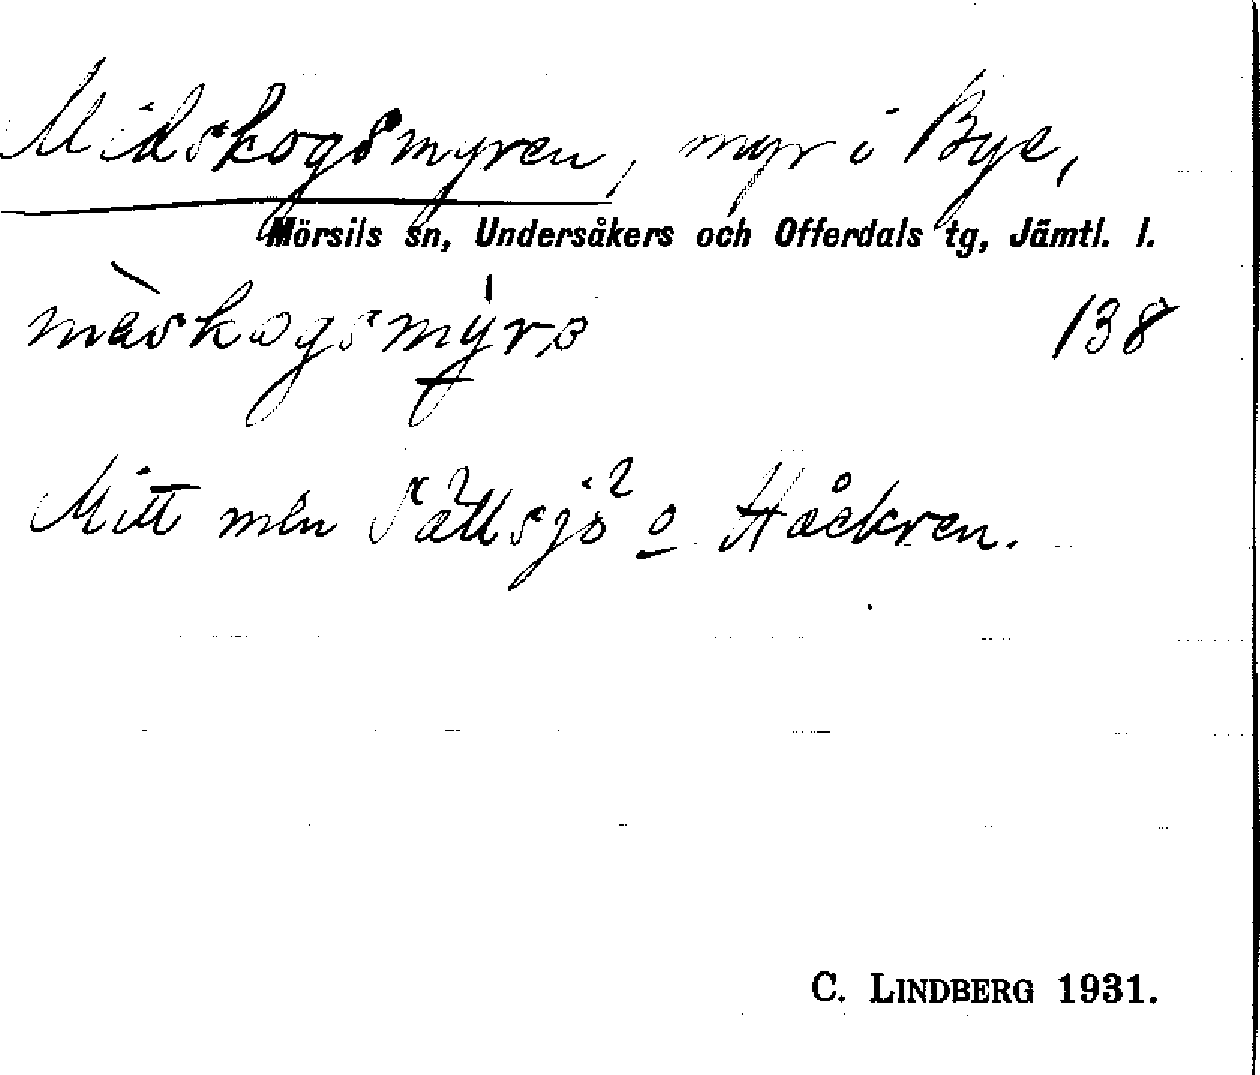 Midskogsmyren, myr i Bye,
Mörsils sn, Undersåkers och Offerdals tg, Jämtl. l.
mèskogsmy̍rɜ 138
Mitt mln Sällsjö 2 o Håckren.
C. LINDBERG 1931.